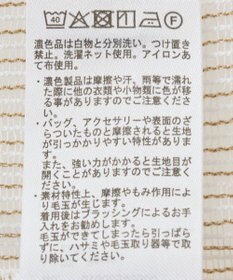 40 P F
濃色品は白物と分別洗い。つけ置き
禁止。洗濯ネット使用。アイロンあ
て布使用。
・濃色製品は摩擦や汗、雨等で濡れ
た際に他の衣類や小物類に色が移
る事がありますのでご注意下さい。
・バッグ、アクセサリーや表面のざ
らついたものと摩擦されると生地
が引っかかりやすい特性がありま
す。
また、強い力がかかると生地目が
開くことがありますのでご注意下
さい。
・素材特性上、摩擦やもみ作用によ
り毛玉が生じます。
着用後はブラッシングによるお手
入れをお勧めします。
毛玉ができてしまったら引っぱら
ずに、ハサミや毛玉取り器等で取
り除いて下さい。